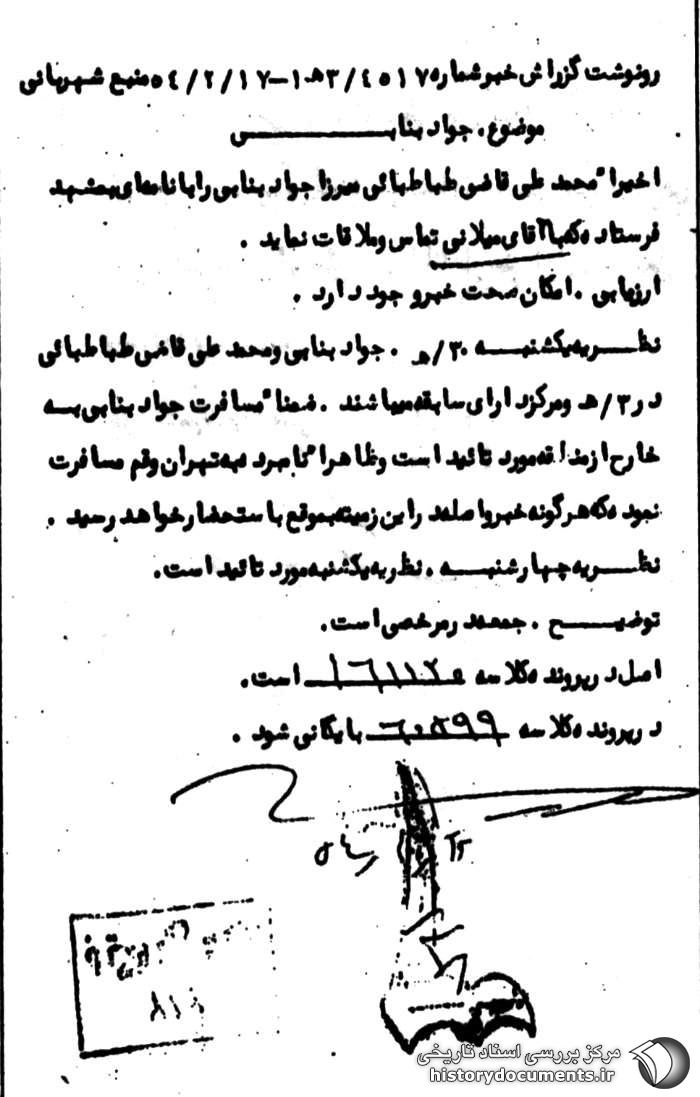 رونوشت گزارش خبر شماره ۴۵۱۷/۳ه‍۱-۵۴/۲/۱۷ منبع شهربانی
موضوع. جواد بنابــــــــی
اخیرا" محمد علی قاضی طباطبائی میرزا جواد بنابی را با نامه‌ای بمشهد
فرستاده که با آقای میلانی تماس و ملاقات نماید .
ارزیابی . امکان صحت خبر وجود دارد .
نظــریه یکشنبــه ۳۰/ه‍ . جواد بنابی و محمد علی قاضی طباطبائی
در ۳/ه‍ و مرکز دارای سابقه میباشند . ضمنا" مسافرت جواد بنابی بــه
خارج از منطقه مورد تائید است و ظاهرا" نامبرده به تهران و قم مسافرت
نموده که هرگونه خبر واصله در این زمینه بموقع باستحضار خواهد رسید .
نظــریه چهارشنبــه . نظریه یکشنبه مورد تائید است.
توضیــح . جمعه در مرخصی است.
اصل در پرونده کلاسه ۱۶۱۱۲۰ است.
در پرونده کلاسه ۶۰۸۹۹ بایگانی شود .
مرکز بررسی اسناد تاریخی
historydocuments.ir